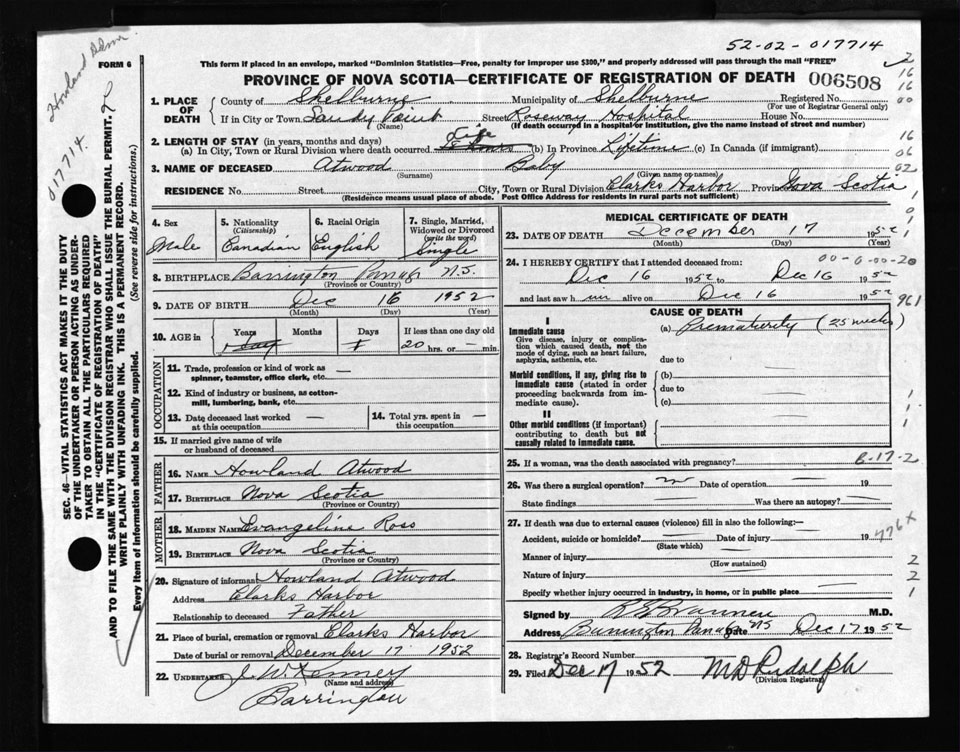 52-02-017714
FORM 6
This form if placed in an envelope, marked "Dominion Statistics—Free, penalty for improper use $300," and properly addressed will pass through the mail "FREE"
PROVINCE OF NOVA SCOTIA—CERTIFICATE OF REGISTRATION OF DEATH 006508
1. PLACE OF DEATH
County of Shelburne Municipality of Shelburne Registered No.
(For use of Registrar General only)
If in City or Town Sandy Point Street Roseway Hospital House No.
(Name) (If death occurred in a hospital or institution, give the name instead of street and number)
2. LENGTH OF STAY (in years, months and days) Life
(a) In City, Town or Rural Division where death occurred (b) In Province Lifetime (c) In Canada (if immigrant)
3. NAME OF DECEASED Atwood Baby
(Surname) (Given name or names)
RESIDENCE No. Street City, Town or Rural Division Clarks Harbor Province Nova Scotia
(Residence means usual place of abode. Post Office Address for residents in rural parts not sufficient)
4. Sex
Male
5. Nationality
(Citizenship)
Canadian
6. Racial Origin
English
7. Single, Married, Widowed or Divorced
(write the word)
Single
8. BIRTHPLACE Barrington Passage N.S.
(Province or Country)
9. DATE OF BIRTH Dec 16 1952
(Month) (Day) (Year)
10. AGE in Years Months Days If less than one day old
1 day 1 20 hrs. or — min.
OCCUPATION
11. Trade, profession or kind of work as spinner, teamster, office clerk, etc. —
12. Kind of industry or business, as cotton-mill, lumbering, bank, etc. —
13. Date deceased last worked at this occupation —
14. Total yrs. spent in this occupation —
15. If married give name of wife or husband of deceased
FATHER
16. NAME Howland Atwood
17. BIRTHPLACE Nova Scotia
(Province or Country)
MOTHER
18. MAIDEN NAME Evangeline Ross
19. BIRTHPLACE Nova Scotia
(Province or Country)
20. Signature of informant Howland Atwood
Address Clarks Harbor
Relationship to deceased Father
21. Place of burial, cremation or removal Clarks Harbor
Date of burial or removal December 17 1952
22. UNDERTAKER J. W. Kenney
(Name and address)
Barrington
MEDICAL CERTIFICATE OF DEATH
23. DATE OF DEATH December 17 1952
(Month) (Day) (Year)
00-0-00-20
24. I HEREBY CERTIFY that I attended deceased from:
Dec 16 1952 to Dec 16 1952
and last saw him alive on Dec 16 1952
961
CAUSE OF DEATH
I
Immediate cause
Give disease, injury or complication which caused death, not the mode of dying, such as heart failure, asphyxia, asthenia, etc.
(a) Prematurity (25 weeks)
due to
Morbid conditions, if any, giving rise to immediate cause (stated in order proceeding backwards from immediate cause).
(b)
due to
(c)
II
Other morbid conditions (if important) contributing to death but not causally related to immediate cause.
25. If a woman, was the death associated with pregnancy? B-17-2
26. Was there a surgical operation? no Date of operation — 19
State findings — Was there an autopsy? —
27. If death was due to external causes (violence) fill in also the following:—
Accident, suicide or homicide? — Date of injury — 19
(State which)
776X
Manner of injury
(How sustained)
Nature of injury
Specify whether injury occurred in industry, in home, or in public place
Signed by M.D.
Address Barrington Passage NS Date Dec 17 1952
28. Registrar's Record Number
29. Filed Dec 17 1952 M D Rudolph
(Division Registrar)
2
16
16
00
16
06
02
1
0
1
1
1
1
2
2
1
SEC. 46—VITAL STATISTICS ACT MAKES IT THE DUTY
OF THE UNDERTAKER OR PERSON ACTING AS UNDER-
TAKER TO OBTAIN ALL THE PARTICULARS REQUIRED
IN THE "CERTIFICATE OF REGISTRATION OF DEATH"
AND TO FILE THE SAME WITH THE DIVISION REGISTRAR WHO SHALL ISSUE THE BURIAL PERMIT.
WRITE PLAINLY WITH UNFADING INK. THIS IS A PERMANENT RECORD.
Every item of information should be carefully supplied. (See reverse side for instructions.)
017714.
Howland